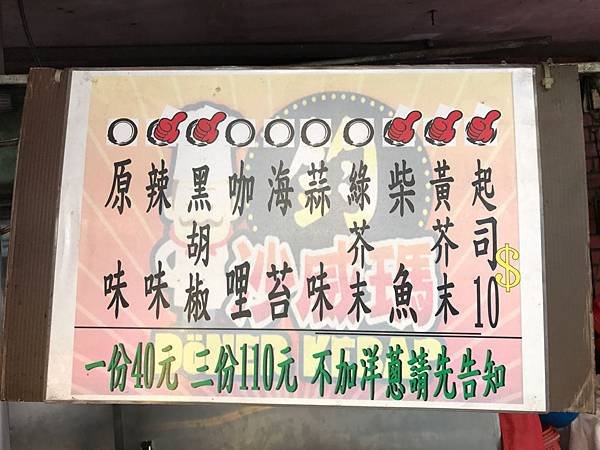 原味
辣味
黑胡椒
咖哩
海苔
蒜味
綠芥末
柴魚
黃芥末
起司10
$
沙威瑪
DÖNER KEBAB
一份40元 三份110元 不加洋蔥請先告知